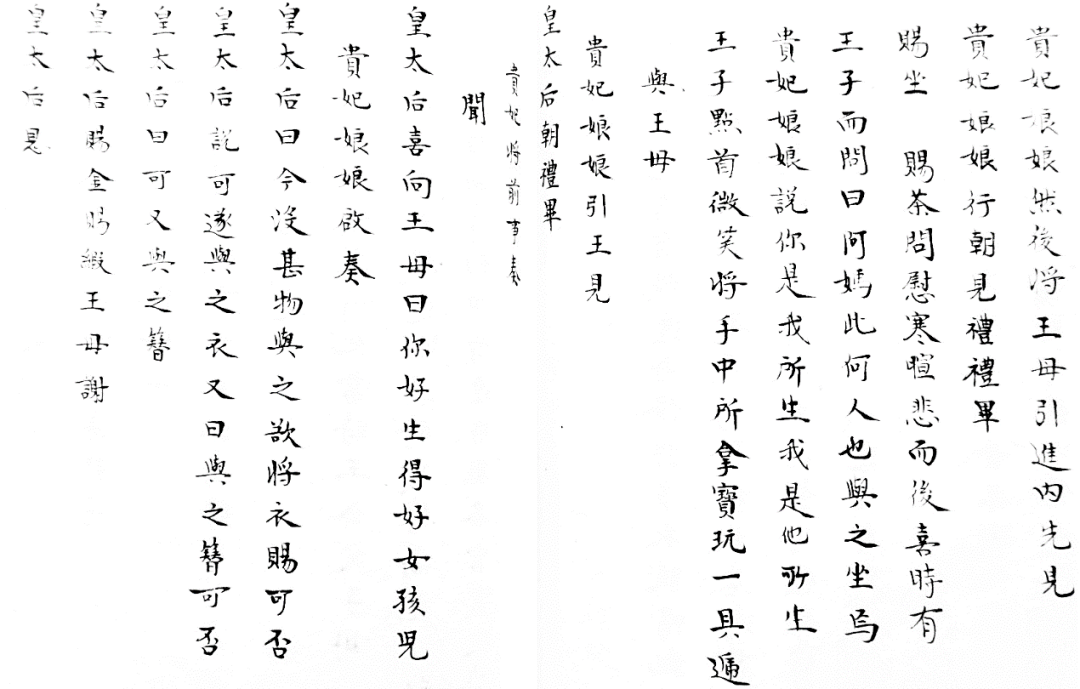 貴妃娘娘然後将王母引進内先見
貴妃娘娘行朝見禮禮畢
賜坐　賜茶問慰寒暄悲而後喜時有
王子而問曰阿媽此何人也與之坐焉
貴妃娘娘説你是我所生我是他所生
王子點首微笑将手中所拿寶玩一具遞
與王母
貴妃娘娘引王見
皇太后朝禮畢
貴妃将前事奏
聞
皇太后喜向王母曰你好生得好女孩児
貴妃娘娘啟奏
皇太后曰今没甚物與之欲将衣賜可否
皇太后説可遂與之衣又曰與之簪可否
皇太后曰可又與之簪
皇太后賜金賜緞王母謝
皇太后恩